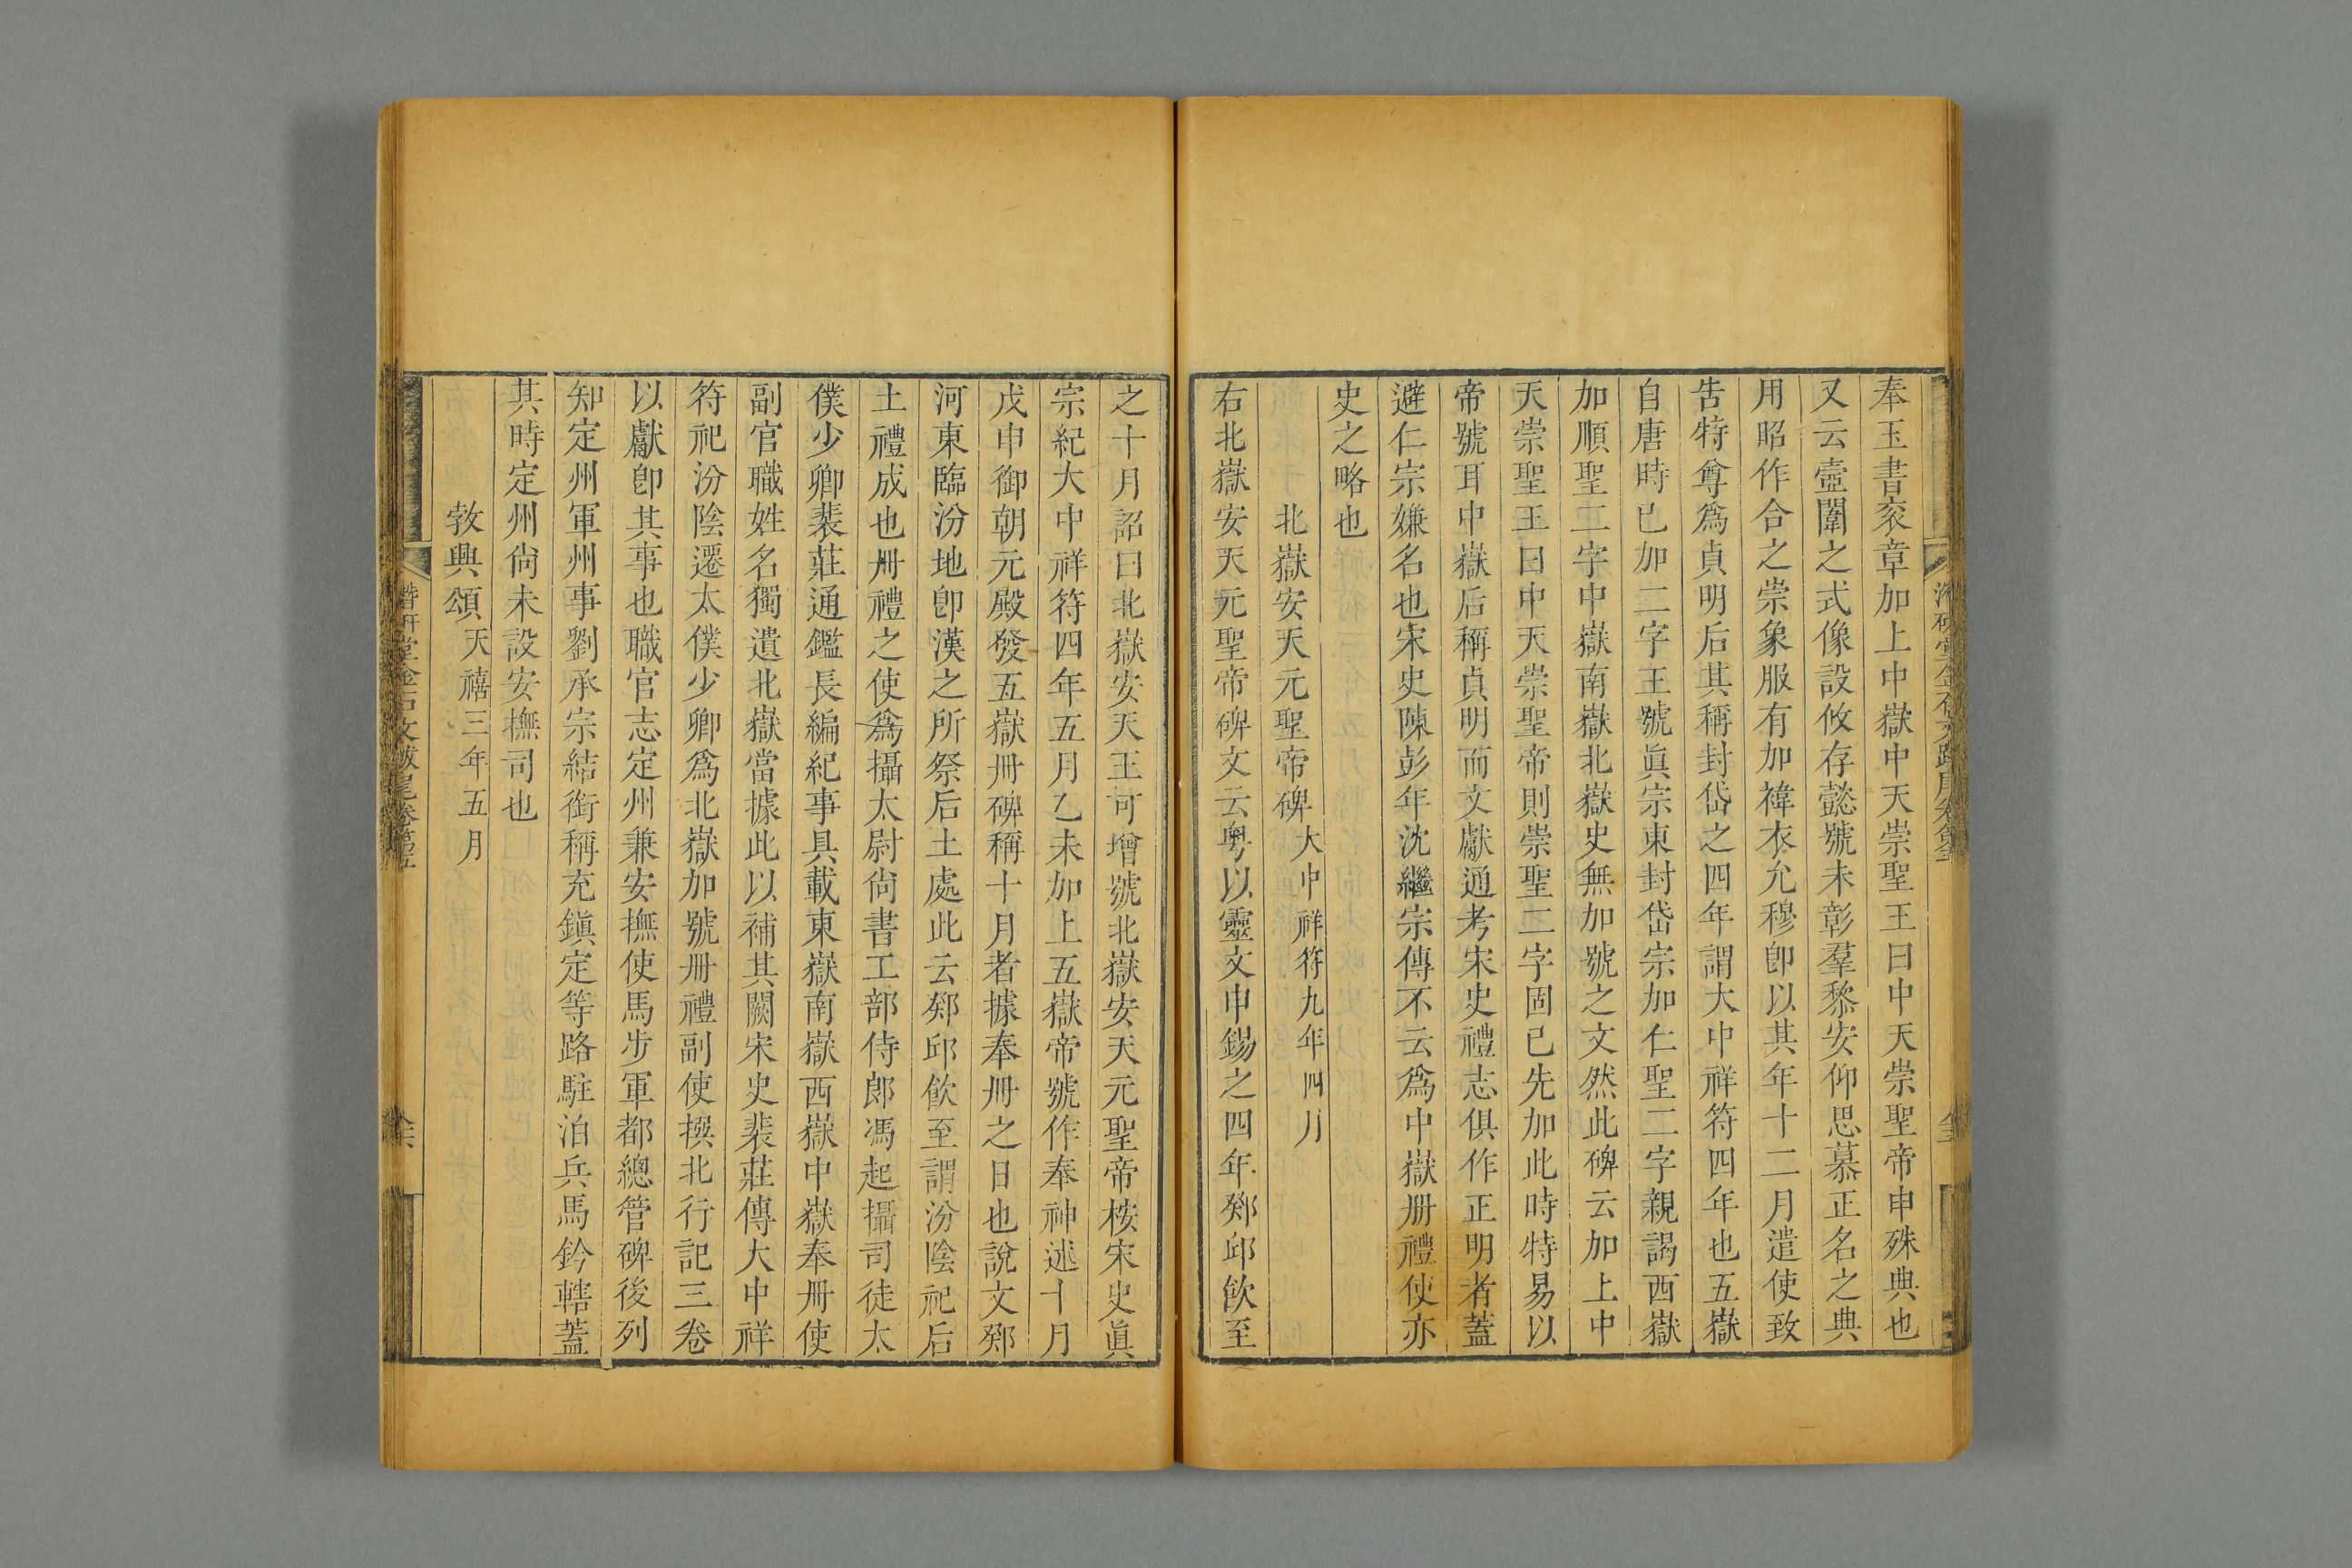 奉玉書衮章加上中嶽中天崇聖王曰中天崇聖帝申殊典也
又云壼闈之式像設攸存懿號未彰羣黎安仰思慕正名之典
用昭作合之崇象服有加褘衣允穆卽以其年十二月遣使致
告特尊爲貞明后其稱封岱之四年謂大中祥符四年也五嶽
自唐時已加二字王號眞宗東封岱宗加仁聖二字親謁西嶽
加順聖二字中嶽南嶽北嶽史無加號之文然此碑云加上中
天崇聖王曰中天崇聖帝則崇聖二字固已先加此時特易以
帝號耳中嶽后稱貞明而文獻通考宋史禮志俱作正明者蓋
避仁宗嫌名也宋史陳彭年沈繼宗傳不云爲中嶽册禮使亦
史之略也
北嶽安天元聖帝碑大中祥符九年四月
右北嶽安天元聖帝碑文云粵以靈文申錫之四年郊邱飮至
之十月詔曰北嶽安天王可增號北嶽安天元聖帝桉宋史眞
宗紀大中祥符四年五月乙未加上五嶽帝號作奉神述十月
戊申御朝元殿發五嶽冊碑稱十月者據奉冊之日也說文郊
河東臨汾地卽漢之所祭后土處此云郊邱飮至謂汾陰祀后
土禮成也冊禮之使爲攝太尉尙書工部侍郎馮起攝司徒太
僕少卿裴莊通鑑長編紀事具載東嶽南嶽西嶽中嶽奉冊使
副官職姓名獨遺北嶽當據此以補其闕宋史裴莊傳大中祥
符祀汾陰遷太僕少卿爲北嶽加號冊禮副使撰北行記三卷
以獻卽其事也職官志定州兼安撫使馬步軍都總管碑後列
知定州軍州事劉承宗結銜稱充鎭定等路駐泊兵馬鈐轄蓋
其時定州尙未設安撫司也
敎興頌天禧三年五月
潛研堂金石文跋尾卷第五